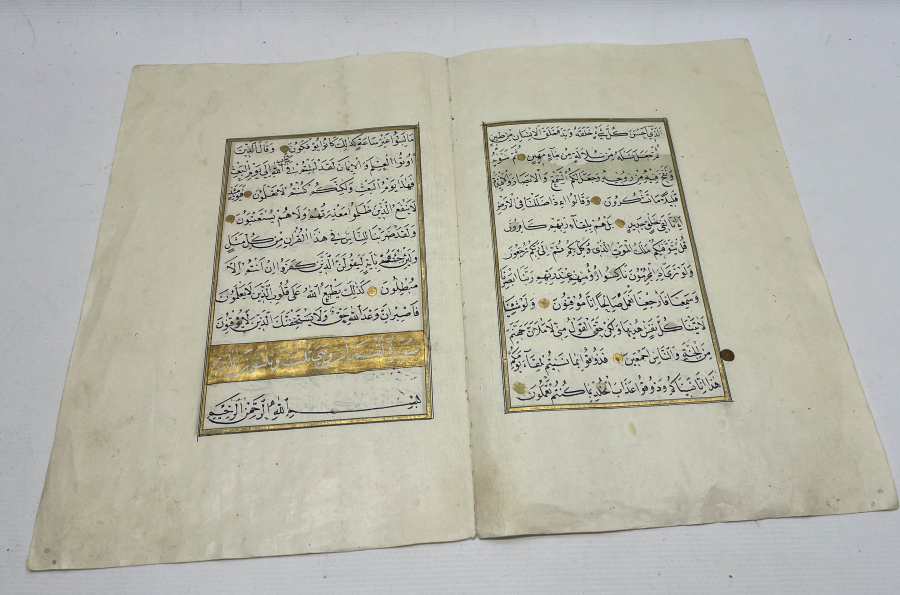 الَّذِي اَحْسَنَ كُلَّ شَيْءٍ خَلَقَهُ وَبَدَاَ خَلْقَ الْاِنْسَانِ مِنْ طِينٍ
ثُمَّ جَعَلَ نَسْلَهُ مِنْ سُلَالَةٍ مِنْ مَاءٍ مَهِينٍ ثُمَّ سَوّٰيهُ
وَنَفَخَ فِيهِ مِنْ رُوحِهِ وَجَعَلَ لَكُمُ السَّمْعَ وَالْاَبْصَارَ وَالْاَفْئِدَةَ
قَلِيلًا مَا تَشْكُرُونَ وَقَالُوا ءَاِذَا ضَلَلْنَا فِي الْاَرْضِ
ءَاِنَّا لَفِي خَلْقٍ جَدِيدٍ بَلْ هُمْ بِلِقَاءِ رَبِّهِمْ كَافِرُونَ
قُلْ يَتَوَفّٰيكُمْ مَلَكُ الْمَوْتِ الَّذِي وُكِّلَ بِكُمْ ثُمَّ اِلٰى رَبِّكُمْ تُرْجَعُونَ
وَلَوْ تَرٰى اِذِ الْمُجْرِمُونَ نَاكِسُوا رُؤُسِهِمْ عِنْدَ رَبِّهِمْ رَبَّنَا اَبْصَرْنَا
وَسَمِعْنَا فَارْجِعْنَا نَعْمَلْ صَالِحًا اِنَّا مُوقِنُونَ وَلَوْ شِئْنَا
لَاٰتَيْنَا كُلَّ نَفْسٍ هُدٰيهَا وَلٰكِنْ حَقَّ الْقَوْلُ مِنِّي لَاَمْلَئَنَّ جَهَنَّمَ
مِنَ الْجِنَّةِ وَالنَّاسِ اَجْمَعِينَ فَذُوقُوا بِمَا نَسِيتُمْ لِقَاءَ يَوْمِكُمْ
هٰذَا اِنَّا نَسِينَاكُمْ وَذُوقُوا عَذَابَ الْخُلْدِ بِمَا كُنْتُمْ تَعْمَلُونَ
مَا لَبِثُوا غَيْرَ سَاعَةٍ كَذٰلِكَ كَانُوا يُؤْفَكُونَ وَقَالَ الَّذِينَ
اُوتُوا الْعِلْمَ وَالْاِيمَانَ لَقَدْ لَبِثْتُمْ فِي كِتَابِ اللّٰهِ اِلٰى يَوْمِ الْبَعْثِ
فَهٰذَا يَوْمُ الْبَعْثِ وَلٰكِنَّكُمْ كُنْتُمْ لَا تَعْلَمُونَ فَيَوْمَئِذٍ
لَا يَنْفَعُ الَّذِينَ ظَلَمُوا مَعْذِرَتُهُمْ وَلَا هُمْ يُسْتَعْتَبُونَ
وَلَقَدْ ضَرَبْنَا لِلنَّاسِ فِي هٰذَا الْقُرْاٰنِ مِنْ كُلِّ مَثَلٍ
وَلَئِنْ جِئْتَهُمْ بِاٰيَةٍ لَيَقُولَنَّ الَّذِينَ كَفَرُوا اِنْ اَنْتُمْ اِلَّا
مُبْطِلُونَ كَذٰلِكَ يَطْبَعُ اللّٰهُ عَلٰى قُلُوبِ الَّذِينَ لَا يَعْلَمُونَ
فَاصْبِرْ اِنَّ وَعْدَ اللّٰهِ حَقٌّ وَلَا يَسْتَخِفَّنَّكَ الَّذِينَ لَا يُوقِنُونَ
سورة لقمان
بِسْمِ اللّٰهِ الرَّحْمٰنِ الرَّحِيمِ